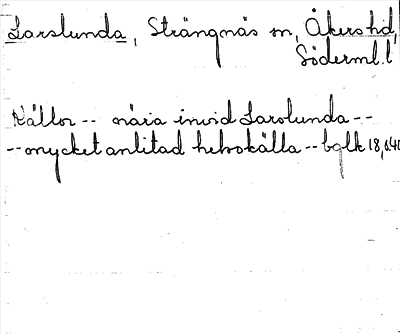 Larslunda, Strängnäs sn, Åkers hd,
Söderml. l
Källor -- nära invid Larslunda --
-- mycket anlitad helsokälla -- bqlk 18,640